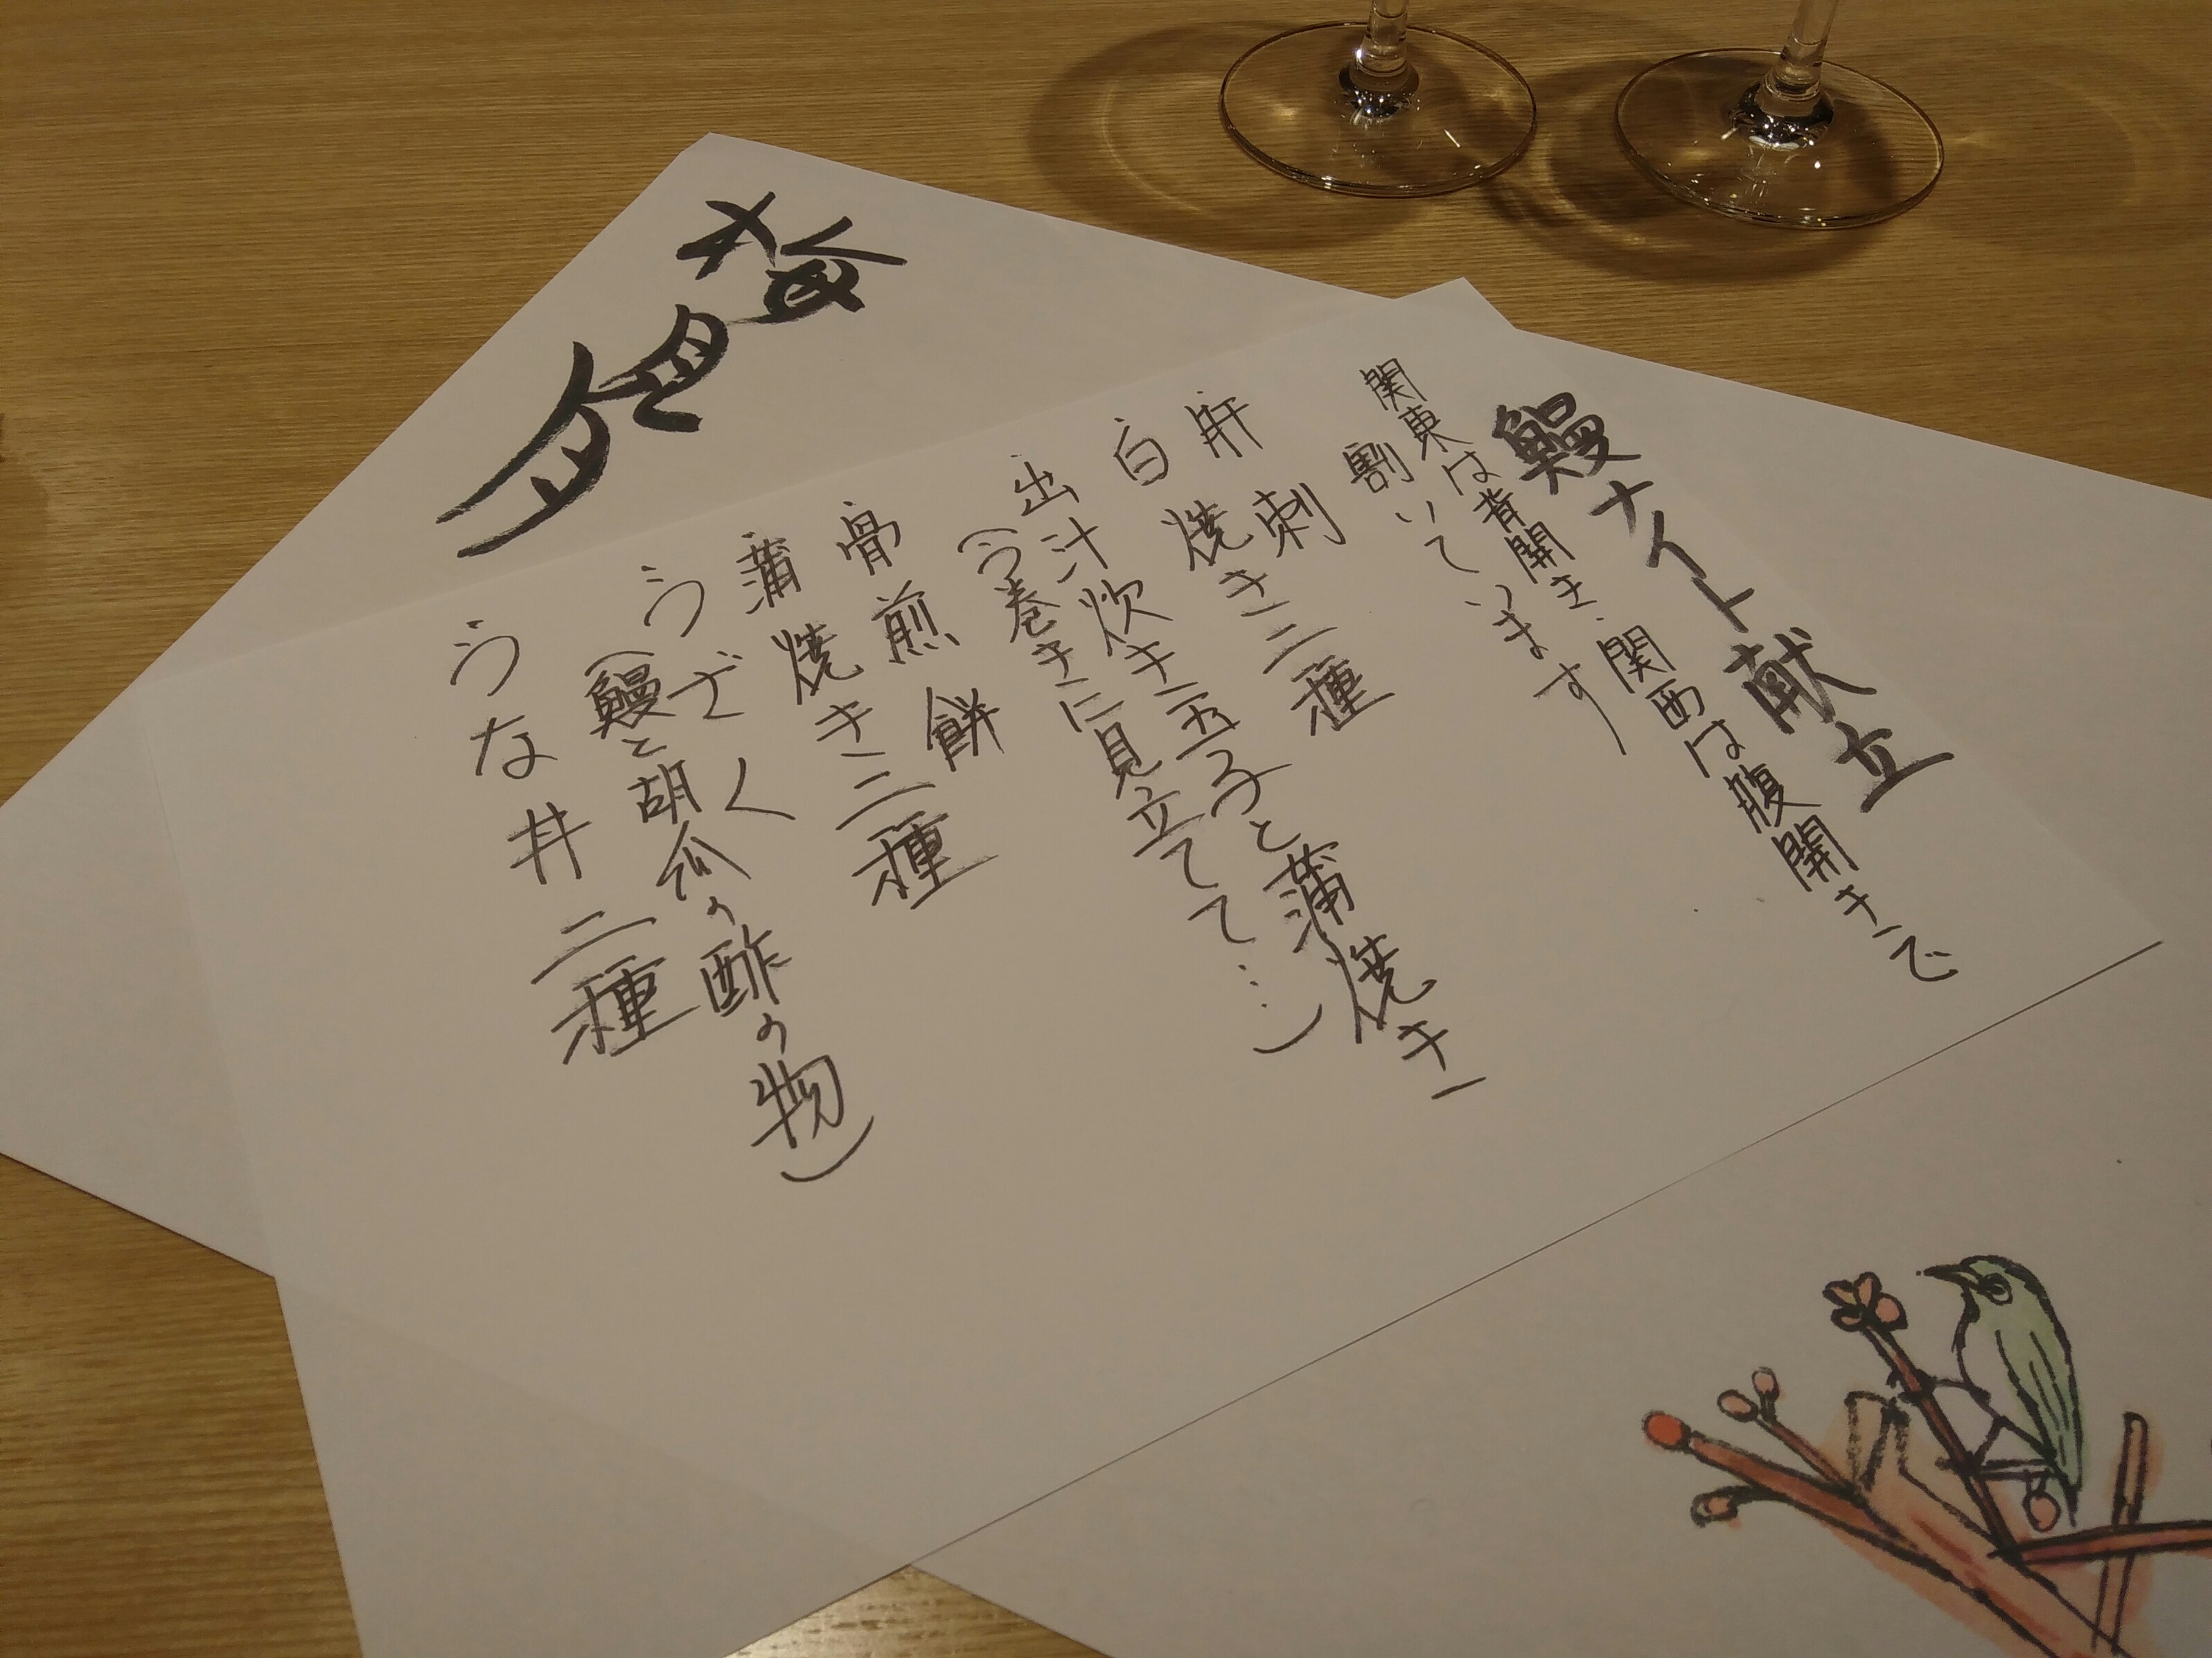 梅見月
鰻ナイト献立
関東は背開き・関西は腹開きで
割いています
肝刺
白焼き二種
出汁炊き玉子と蒲焼き
(う巻きに見立てて…)
骨煎餅
蒲焼き二種
うざく
(鰻と胡瓜の酢の物)
うな丼二種